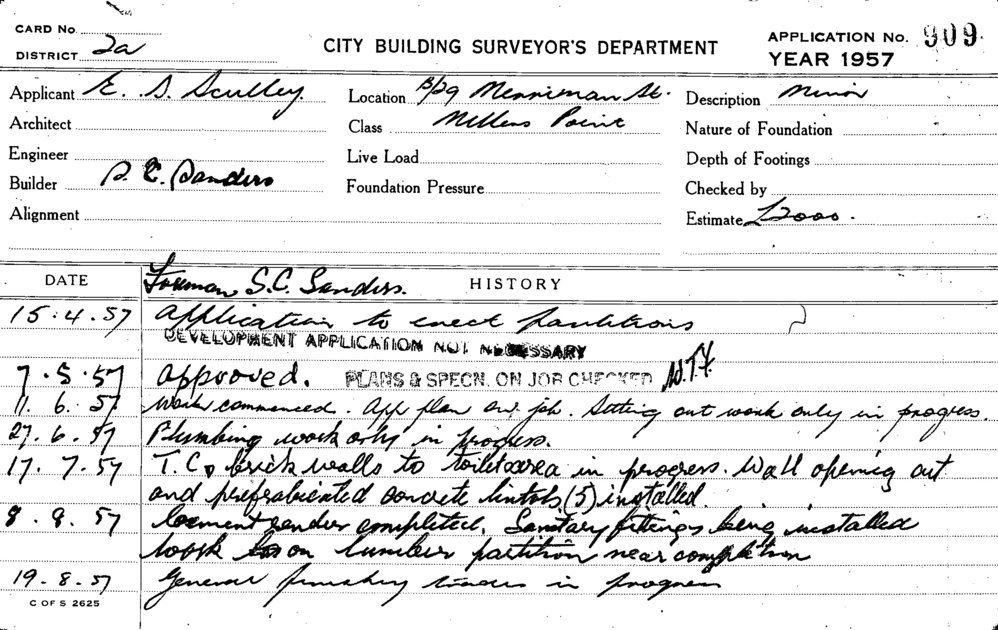 CARD No.
DISTRICT 2a
CITY BUILDING SURVEYOR'S DEPARTMENT
APPLICATION No. 909
YEAR 1957
Applicant E. S. Sculley
Location 13/29 Merriman St.
Description Minor
Architect
Class Millers Point
Nature of Foundation
Engineer
Live Load
Depth of Footings
Builder S. C. Sanders
Foundation Pressure
Checked by
Alignment
Estimate £2000.
DATE
Foreman S.C. Sanders.
HISTORY
15.4.57 Application to erect partitions
DEVELOPMENT APPLICATION NOT NECESSARY
7.5.57 approved. PLANS & SPECN. ON JOB CHECKED
11.6.57 Work commenced. App plan on job. Setting out work only in progress.
27.6.57 Plumbing work only in progress.
17.7.57 T.C. & brick walls to toilet area in progress. Wall opening out
and prefabricated concrete lintols (5) installed.
8.8.57 Cement render completed. Sanitary fittings being installed
work on lumber partition near completion
19.8.57 General finishing trades in progress
C OF S 2625